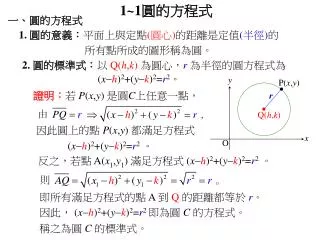 1~1圓的方程式
一、圓的方程式
1. 圓的意義：平面上與定點(圓心)的距離是定值(半徑)的
所有點所成的圖形稱為圓。
2. 圓的標準式：以 Q(h,k) 為圓心，r 為半徑的圓方程式為
(x−h)²+(y−k)²=r² 。
證明：若 P(x,y) 是圓C上任意一點，
由 PQ = r ⇒ √((x−h)²+(y−k)²) = r ，
因此圓上的點 P(x,y) 都滿足方程式
(x−h)²+(y−k)²=r² 。
反之，若點 A(x₁,y₁) 滿足方程式 (x−h)²+(y−k)²=r² 。
則 AQ = √((x₁−h)²+(y₁−k)²) = √r² = r 。
即所有滿足方程式的點 A 到 Q 的距離都等於 r。
因此， (x−h)²+(y−k)²=r² 即為圓 C 的方程式。
稱之為圓 C 的標準式。
y
P(x,y)
r
Q(h,k)
O
x